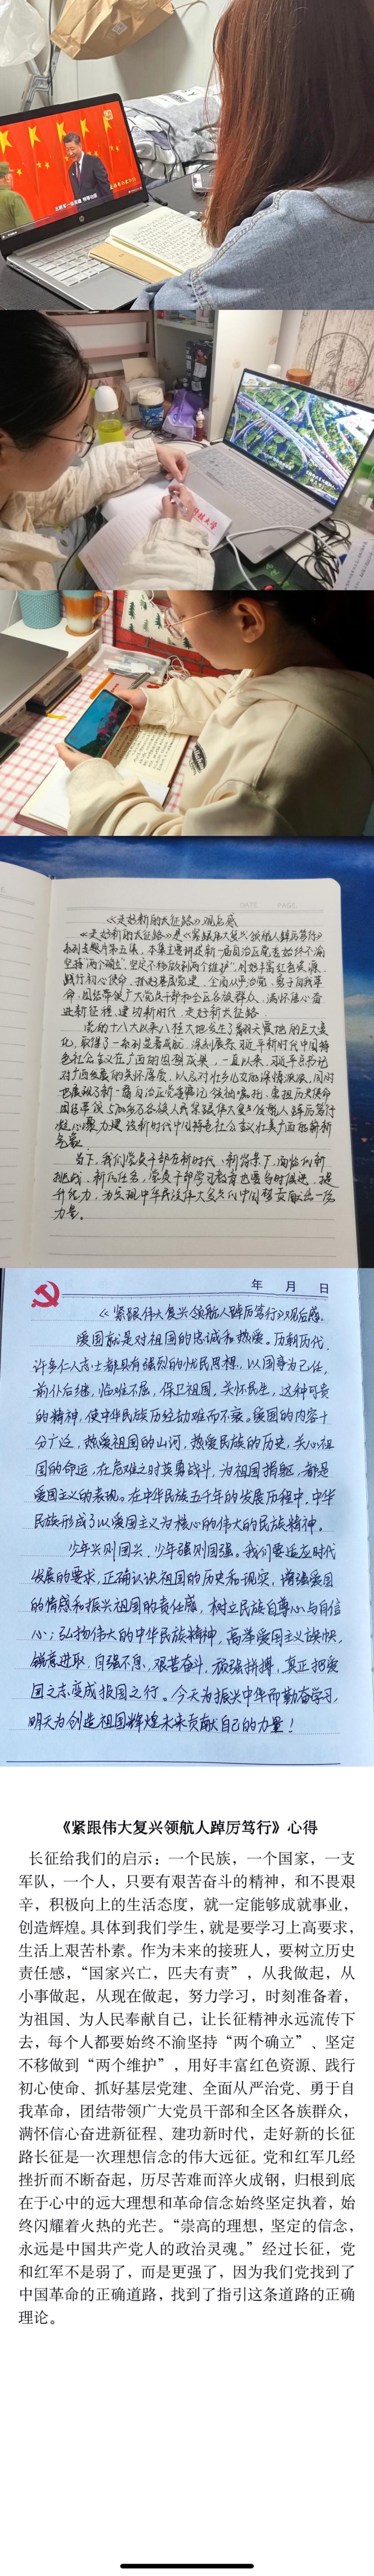 DATE: PAGE:
《走好新的长征路》观后感
《走好新的长征路》是《紧跟伟大复兴领航人踔厉笃行》
系列专题片第五集，本集主要讲述新一届自治区党委始终不渝
坚持"两个确立"、坚定不移做到"两个维护"，用好丰富红色资源、
践行初心使命、抓好基层党建、全面从严治党、勇于自我革
命，团结带领广大党员干部和全区各族群众，满怀信心奋
进新征程、建功新时代，走好新的长征路。
党的十八大以来，八桂大地发生了翻天覆地的巨大变
化，取得了一系列显著成就，
色社会主义在广西的 成果，一直以来，习近平总书记
对广西发展的关怀厚爱，以及对壮乡儿女的深情
当下，我们党员干部在新时代、新 下，面临的新
挑战、新的任务，党员干部学习者有也要与时俱进，提
升能力，为实现中华民族伟大复兴的中国梦贡献出一份
力量。
年 月 日
《紧跟伟大复兴领航人踔厉笃行》观后感。
爱国就是对祖国的忠诚和热爱。历朝历代，
许多仁人志士都具有强烈的忧民思想，以国事为己任，
前仆后继，临难不屈，保卫祖国，关怀民生，这种可贵
的精神，使中华民族历经劫难而不衰。爱国的内容十
分广泛，热爱祖国的山河，热爱民族的历史，关心祖
国的命运，在危难之时英勇战斗，为祖国捐躯，都是
爱国主义的表现。在中华民族五千年的发展历程中，中华
民族形成了以爱国主义为核心的伟大的民族精神。
少年兴则国兴，少年强则国强。我们要适应时代
发展的要求，正确认识祖国的历史和现实，增强爱国
的情感和振兴祖国的责任感，树立民族自尊心与自信
心；弘扬伟大的中华民族精神，高举爱国主义旗帜，
锐意进取，自强不息，艰苦奋斗，顽强拼搏，真正把爱
国之志变成报国之行。今天为振兴中华而勤奋学习，
明天为创造祖国辉煌未来贡献自己的力量！
《紧跟伟大复兴领航人踔厉笃行》心得
长征给我们的启示：一个民族，一个国家，一支
军队，一个人，只要有艰苦奋斗的精神，和不畏艰
辛，积极向上的生活态度，就一定能够成就事业，
创造辉煌。具体到我们学生，就是要学习上高要求，
生活上艰苦朴素。作为未来的接班人，要树立历史
责任感，“国家兴亡，匹夫有责”，从我做起，从
小事做起，从现在做起，努力学习，时刻准备着，
为祖国、为人民奉献自己，让长征精神永远流传下
去，每个人都要始终不渝坚持“两个确立”、坚定
不移做到“两个维护”，用好丰富红色资源、践行
初心使命、抓好基层党建、全面从严治党、勇于自
我革命，团结带领广大党员干部和全区各族群众，
满怀信心奋进新征程、建功新时代，走好新的长征
路长征是一次理想信念的伟大远征。党和红军几经
挫折而不断奋起，历尽苦难而淬火成钢，归根到底
在于心中的远大理想和革命信念始终坚定执着，始
终闪耀着火热的光芒。“崇高的理想，坚定的信念，
永远是中国共产党人的政治灵魂。”经过长征，党
和红军不是弱了，而是更强了，因为我们党找到了
中国革命的正确道路，找到了指引这条道路的正确
理论。